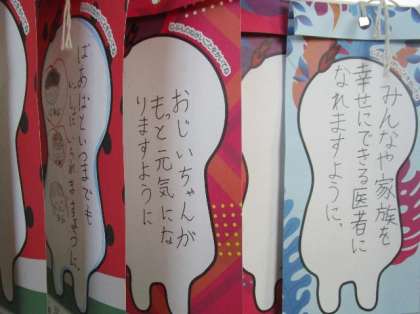 みんなや家族を
幸せにできる医者に
なれますように、
おじいちゃんが
もっと元気にな
りますように
ばあばといつまでも
いっしょにいられますように、